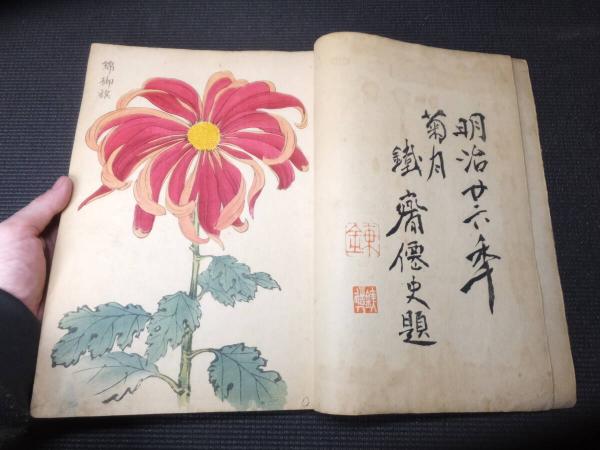 明治廿六年
菊月
鐵齋僊史題
錦御旗